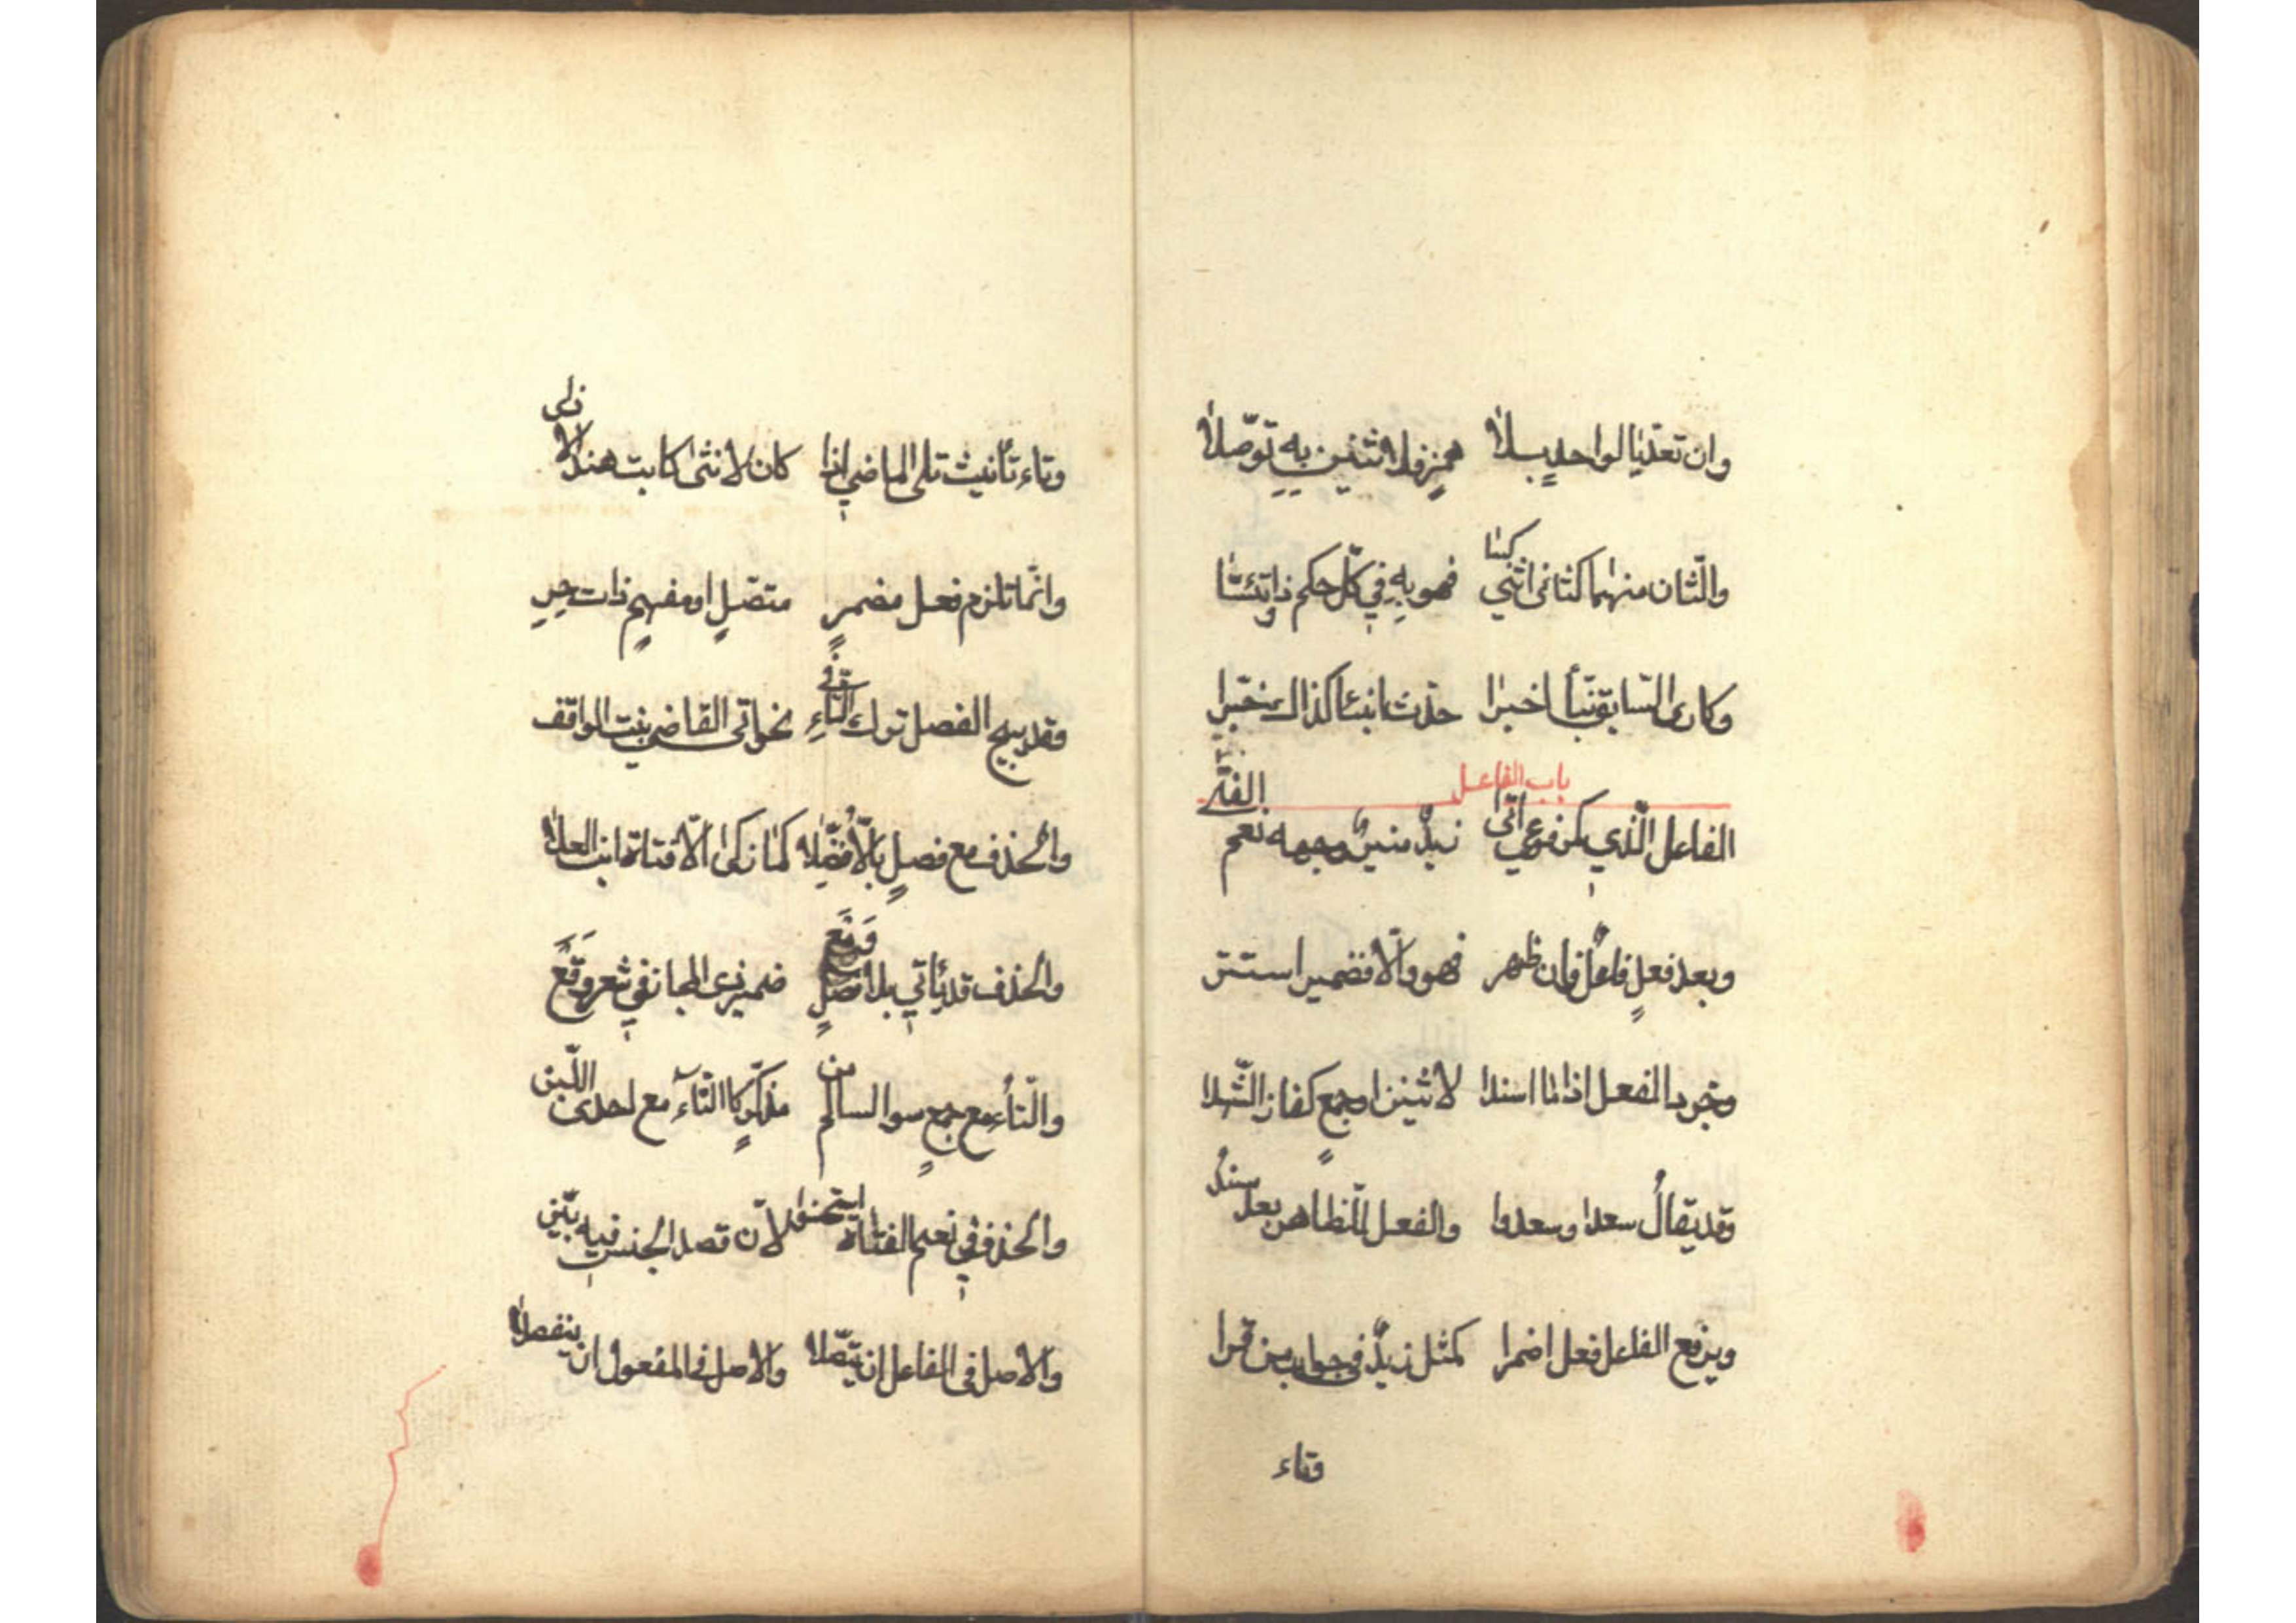 وان تعدّيا لواحدٍ بلا همزٍ فلاثنين به توصّلا
والثّان منهما كثانى اثني كسا فهو به في كلّ حكم ذو ائتسا
وكارى السّابق نبّأ اخبرا حدّث انبئا كذاك خبّرا
باب الفاعل
الفاعل الّذي كمرفوعي اتى زيدٌ منيرٌ وجهه نعم الفتى
وبعد فعلٍ فاعلٌ فان ظهر فهو والّا فضمير استتر
وجرد الفعل اذا ما اسندا لاثنين او جمعٍ كفاز الشّهدا
وقد يقالُ سعدا وسعدوا والفعل للظاهر بعد مسندٌ
ويرفع الفاعل فعل اضمرا كمثل زيدٌ في جواب من قرا
وتاء
وتاء تأنيث تلى الماضي اذا كان لانثى كابت هند الاذى
وانّما تلزم فعل مضمرٍ متصّلٍ او مفهمٍ ذات حر
وقد يبيح الفصل ترك التّاءِ في نحو اتى القاضي بنت الواقف
والحذف مع فصلٍ بالّا فضّلا كما زكى الّا فتاة ابن العلا
والحذف قد يأتي بلا فصلٍ ومع ضمير ذى المجاز في شعر وقع
والتّاء مع جمعٍ سوا السالم من مذكّرٍ كا التّاء مع احدى اللّبن
والحذف في نعم الفتاة استحسنوا لانّ قصد الجنس فيه بيّن
والاصل فى الفاعل ان يتّصلا والاصل فى المفعول ان ينفصلا